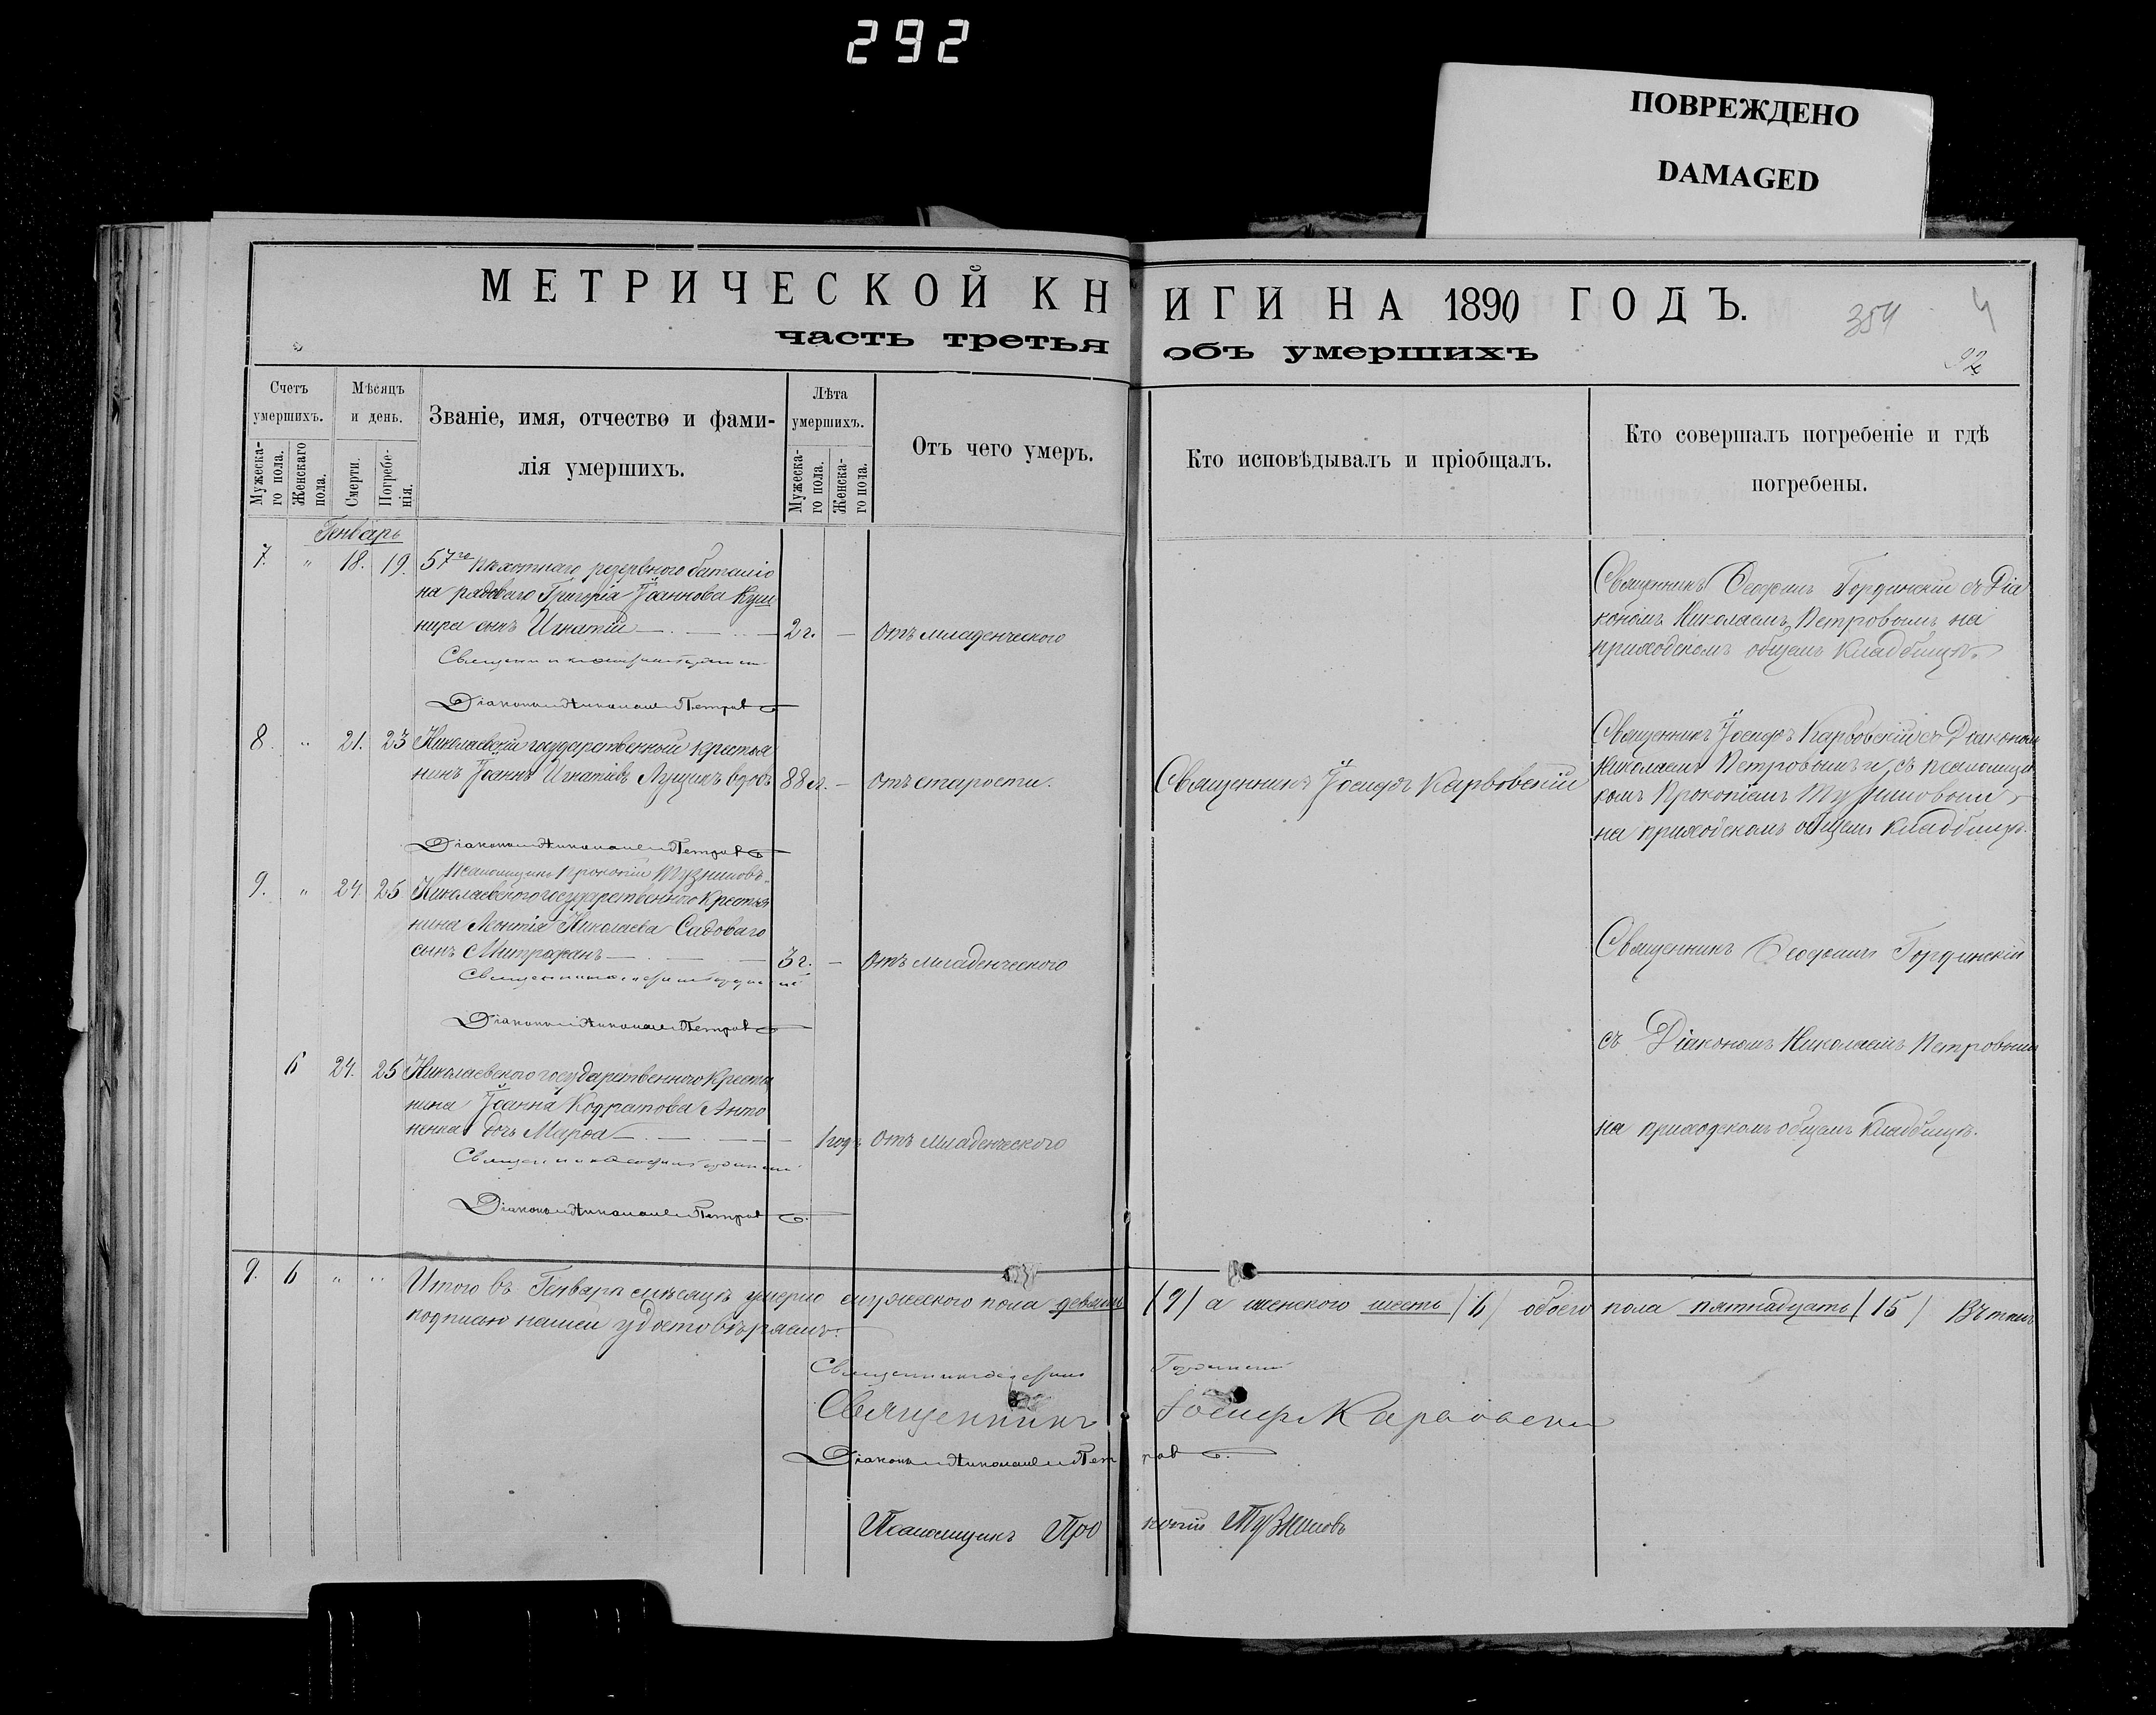 292
ПОВРЕЖДЕНО
DAMAGED
МЕТРИЧЕСКОЙ КНИГИ НА 1890 ГОДЪ.
354
4
92
часть третья объ умершихъ
Счетъ умершихъ.
Мужескаго пола.
Женскаго пола.
Мѣсяцъ и день.
Смерти.
Погребенія.
Званіе, имя, отчество и фамилія умершихъ.
Лѣта умершихъ.
Мужескаго пола.
Женскаго пола.
Отъ чего умеръ.
Кто исповѣдывалъ и пріобщалъ.
Кто совершалъ погребеніе и гдѣ погребены.
Генварь
7. " 18. 19. 57го пѣхотнаго резервного баталіо
на рядоваго Григорія Іоаннова Куш
нира сынъ Игнатій 2 г. — отъ младенческого
Діаконъ Николай Петровъ
Священникъ Ѳеофилъ Гординскій съ Діа
кономъ Николаемъ Петровымъ на
приходскомъ общемъ кладбищѣ.
8. " 21. 23 Николаевскій государственный крестья
нинъ Іоаннъ Игнатіевъ Лущикъ вдовъ 88 л. — отъ старости.
Священникъ Іосифъ Карвовскій
Священникъ Іосифъ Карвовскій съ Діакономъ
Николаемъ Петровымъ и съ псаломщи
комъ Прокопіемъ
на приходскомъ общемъ кладбищѣ.
Діаконъ Николай Петровъ
Псаломщикъ Прокопій
9. " 24. 25 Николаевского государственного крестья
нина Леонтія Николаева Садоваго
сынъ Митрофанъ 3 г. — отъ младенческого
Діаконъ Николай Петровъ
Священникъ Ѳеофилъ Гординскій
съ Діакономъ Николаемъ Петровымъ
на приходскомъ общемъ кладбищѣ.
6 24. 25 Николаевского государственного крестья
нина Іоанна Кодратова Анто
ненка дочь Марѳа 1 годъ отъ младенческого
Діаконъ Николай Петровъ
9. 6 " " Итого въ Генварѣ мѣсяцѣ умерло мужеского пола девять (9) а женского шесть (6) обоего пола пятнадцать (15) Въ томъ
подписью нашей удостовѣряемъ.
Священникъ Ѳеофилъ Гординскій
Священникъ Іосифъ Карвовскій
Діаконъ Николай Петровъ
Псаломщикъ Прокопій